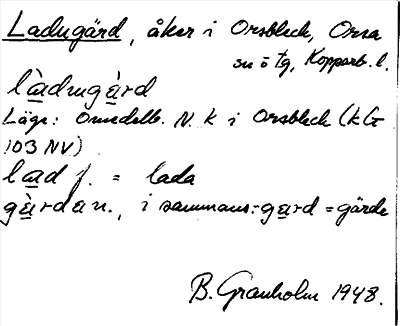 Ladugärd, åker i Orsbleck, Orsa
sn o tg, Kopparb. l.
làdugàrd
Läge: Omedelb. N. K i Orsbleck (kG
103 NV)
lad f. = lada
gàrda n., i sammans: gard = gärde
B. Granholm 1948.